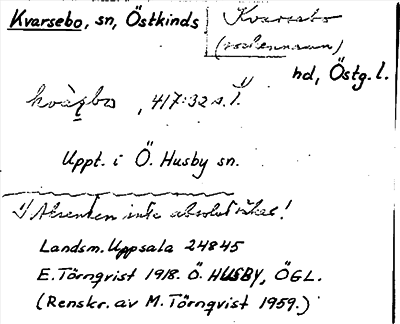 Kvarsebo, sn, Östkinds
Kvarsebo
(sockennamn)
hd, Östg. l.
, 417:32 s. 1. 1)
Uppt. i Ö. Husby sn.
1) Aksenten inte absolut säker!
Landsm. Uppsala 24845
E. Törnqvist 1918. Ö. HUSBY, ÖGL.
(Renskr. av M. Törnqvist 1959.)